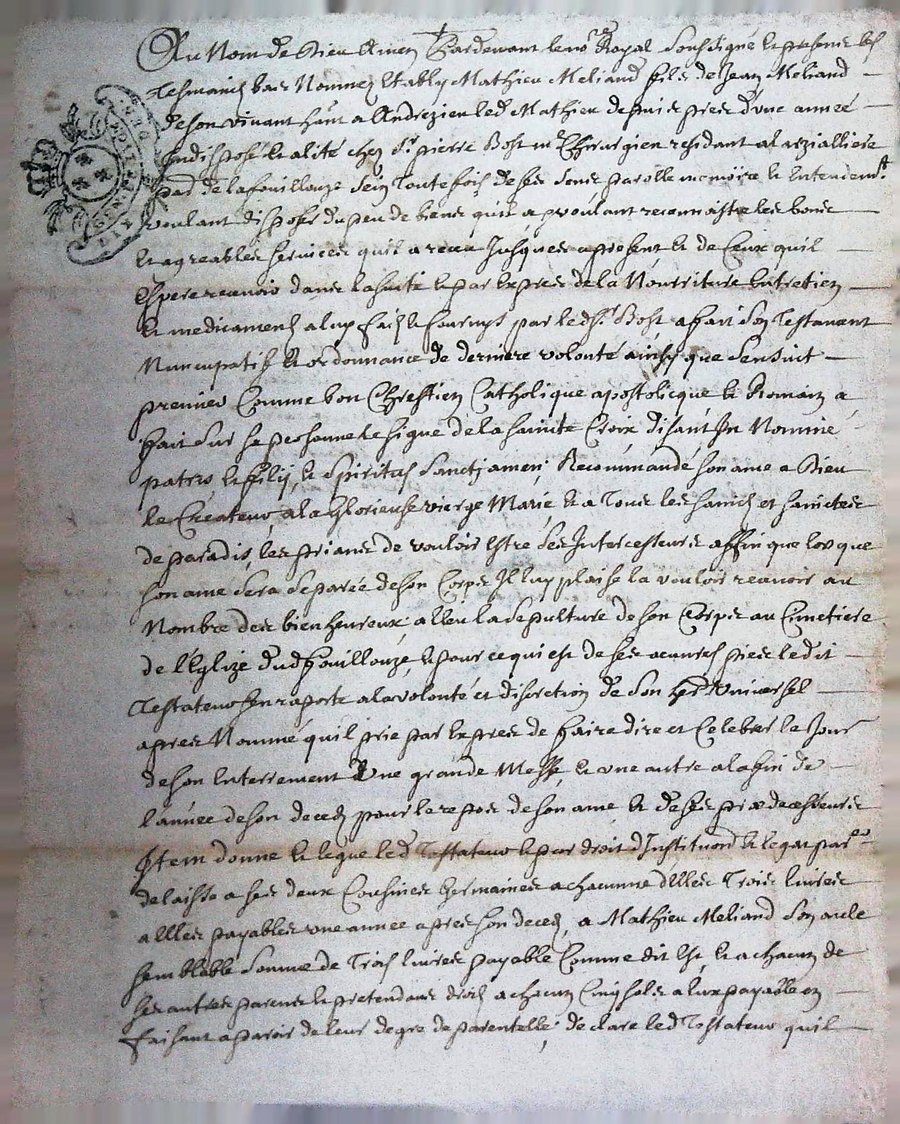 Au Nom de Dieu Amen Pardevant le no.re Royal Soussigné et presents les
Tesmoins bas Nommez Estably Mathieu Meliand fils de Jean Meliand
de son vivant hant a Andrezieu led Mathieu depuis pres d'une année
Indisposé et alité chez Sr pierre Bost m.e Chirurgien residant a larzialliere
parr de lafouillouze sein Toutefois de ses sens parolle memoire et Entendem.t
voulant disposer du peu de biens quil a et voulant reconnaistre les bons
et agreables services quil a receu Jusques a present et de Ceux quil
Espere recevoir dans la suitte et par Expres de la Nourriture Entretien
et medicaments a luy faits et fournys par led Sr Bost a fait Son Testament
Nuncupatif et ordonnance de derniere volonté ainsy que Sensuit
premier Comme bon Chrestien Catholique apostolicque et Romain a
fait Sur sa personne le signe de la sainte Croix disant In Nomine
patris et filij et Spiritus Sancti amen Recommandé son ame a Dieu
le Createur a la Glorieuse vierge Marie et a Tous les saints et sainctes
de paradis les priant de vouloir Estre Ses Intercesseurs affin que lors que
son ame Sera Separée de son Corps Il luy plaise la vouloir recevoir au
Nombre des bienheureux, a Esleu la Sepulture de son Corps au Cimetiere
de l'Eglize dud fouillouze, et pour ce qui est de ses oeuvres pies ledit
Testateur Sen raporte a la volonté et discretion de Son her Universel
apres Nommé quil prie par Expres de faire dire et Celebrer le Jour
de son Enterrement Une grande Messe et une autre a la fin de
l'année de son deceds pour le repos de son ame et de ses predecesseurs
Item donne et legue led Testateur et par droit d'Institution et legat par.re
delaisse a ses deux Cousines Germaines a chacune d'Elles Trois livres
a Elles payables une année apres son deceds, a Mathieu Meliand Son oncle
semblable Somme de Trois livres payable Comme dit Est, et a chacun de
ses autres parens et pretendans droits a chacun Cinq sols a Eux payable en
faisant aparoir de leur degre de parentelle, declare led Testateur quil